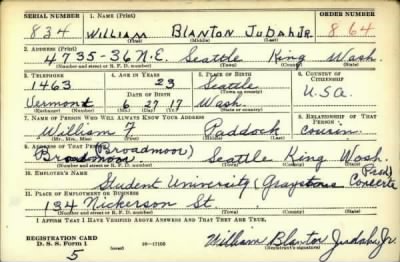 SERIAL NUMBER 1. NAME (Print) ORDER NUMBER
834 William Blanton Judah Jr. 864
(First) (Middle) (Last)
2. ADDRESS (Print)
4735-36 N.E. Seattle King Wash.
(Number and street or R. F. D. number) (Town) (County) (State)
3. TELEPHONE 4. AGE IN YEARS 5. PLACE OF BIRTH 6. COUNTRY OF CITIZENSHIP
1463 23 Seattle
(Town or county)
DATE OF BIRTH U.S.A.
Vermont 6 27 17 Wash.
(Exchange) (Number) (Mo.) (Day) (Yr.) (State or country)
7. NAME OF PERSON WHO WILL ALWAYS KNOW YOUR ADDRESS 8. RELATIONSHIP OF THAT PERSON
William F. Paddock cousin
(Mr., Mrs., Miss) (First) (Middle) (Last)
9. ADDRESS OF THAT PERSON
(Broadmoor)
Broadmoor Seattle King Wash.
(Number and street or R. F. D. number) (Town) (County) (State)
10. EMPLOYER'S NAME
Student University (Graystone Concrete Prod.)
11. PLACE OF EMPLOYMENT OR BUSINESS
134 Nickerson St.
(Number and street or R. F. D. number) (Town) (County) (State)
I AFFIRM THAT I HAVE VERIFIED ABOVE ANSWERS AND THAT THEY ARE TRUE.
REGISTRATION CARD
D. S. S. Form 1 16-17105 William Blanton Judah Jr.
(Registrant's signature)
5